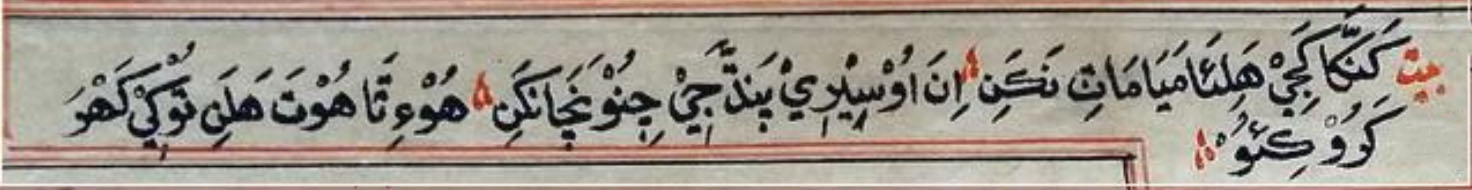 بيت كَنكَا كَجِيْ هَلِئَا مَيَا مَاتِ نَكَنِ اِنَ اُوْسِيْلِرِيْ پَنڌَ جِيْ جِنُوْ نَچَانكَنِ هُوْءِ تَا هُوْتَ هَلَنِ تُوْكِيْ كَهْرَ
كَرُوْ كِئَوُ